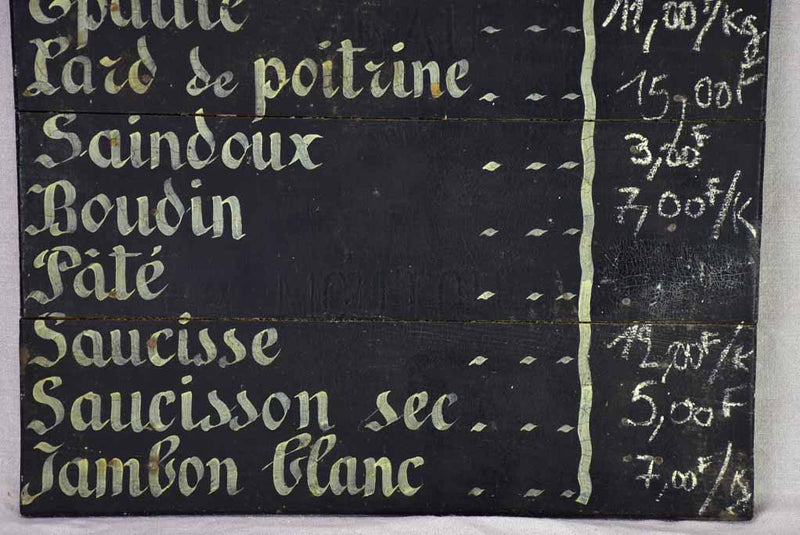 Épaule - - - 11,00F/Kg
Lard de poitrine - - - 15,00F
Saindoux - - - 3,00F
Boudin - - - 7,00F/K
Pâté - - -
Saucisse - - - 12,00F/K
Saucisson sec - - - 5,00F
Jambon blanc - - - 7,00F/Kg